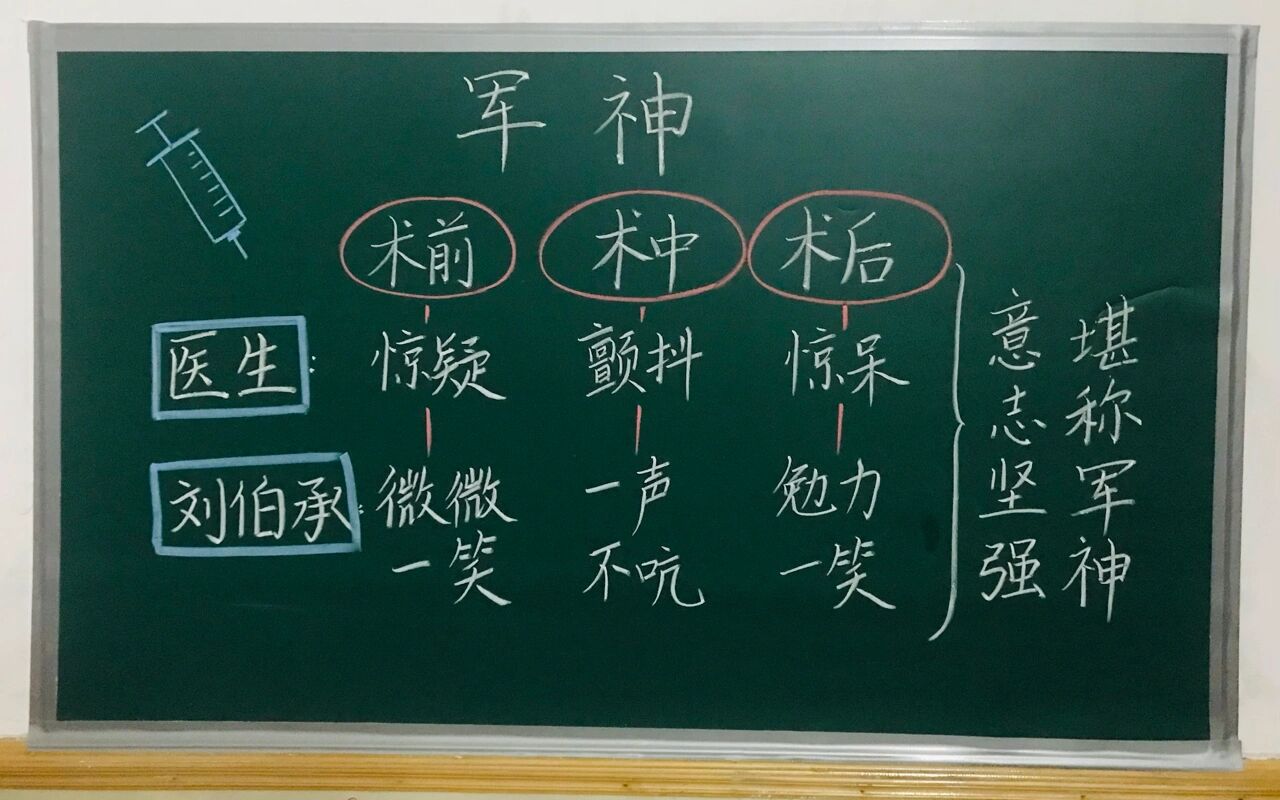 军神
术前 术中 术后
医生: 惊疑 颤抖 惊呆
刘伯承: 微微一笑 一声不吭 勉力一笑
意志坚强
堪称军神